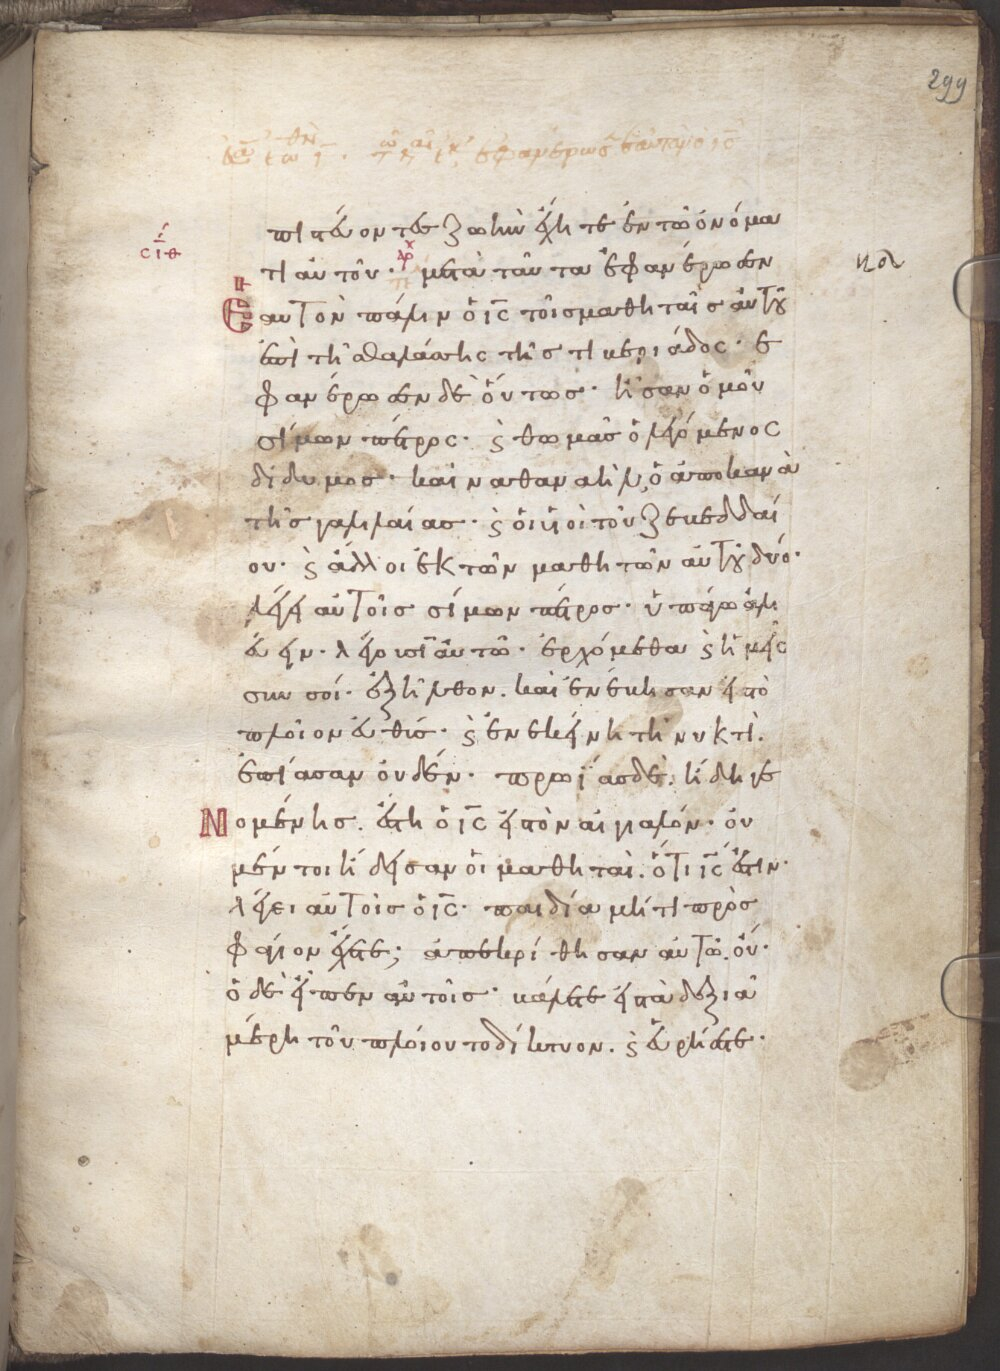 299
ἐφανέρωσεν ἑαυτὸν ὁ ις
πιστεύοντες ζωὴν ἔχητε ἐν τῶ ὀνόμα
τι αὐτοῦ · μετὰ ταῦτα ἐφανέρωσεν
σιθ
κα
Ἑαυτὸν πάλιν ὁ ις τοῖς μαθηταῖς αὐτοῦ
ἐπὶ τῆς θαλάσσης τῆς τιβεριάδος · ἐ
φανέρωσεν δὲ οὕτως · ἦσαν ὁμοῦ
σίμων πέτρος · ϗ θωμᾶς ὁ λεγόμενος
δίδυμος · καὶ ναθαναὴλ, ὁ ἀπὸ κανᾶ
τῆς γαλιλαίας · ϗ οἱ υἱοὶ τοῦ ζεβεδαί
ου · ϗ ἄλλοι ἐκ τῶν μαθητῶν αὐτοῦ δύο ·
λέγει αὐτοῖς σίμων πέτρος · ὑπάγω ἁλι
εύειν · λέγουσιν αὐτῶ · ἐρχόμεθα ϗ ἡμεῖς
σὺν σοί · ἐξῆλθον · καὶ ἐνέβησαν εἰς τὸ
πλοῖον εὐθύς · ϗ ἐν ἐκείνη τῆ νυκτὶ ·
ἐπίασαν οὐδέν · πρωΐας δὲ ἤδη γε
Νομένης · ἔστη ὁ ις εἰς τὸν αἰγιαλόν · οὐ
μέντοι ἤδεισαν οἱ μαθηταὶ · ὅτι ις ἐστιν ·
λέγει αὐτοῖς ὁ ις · παιδία μή τι προσ
φάγιον ἔχετε; ἀπεκρίθησαν αὐτῶ · οὔ ·
ὁ δὲ εἶπεν αὐτοῖς · βάλετε εἰς τὰ δεξιὰ
μέρη τοῦ πλοίου τὸ δίκτυον · ϗ εὑρήσετε ·